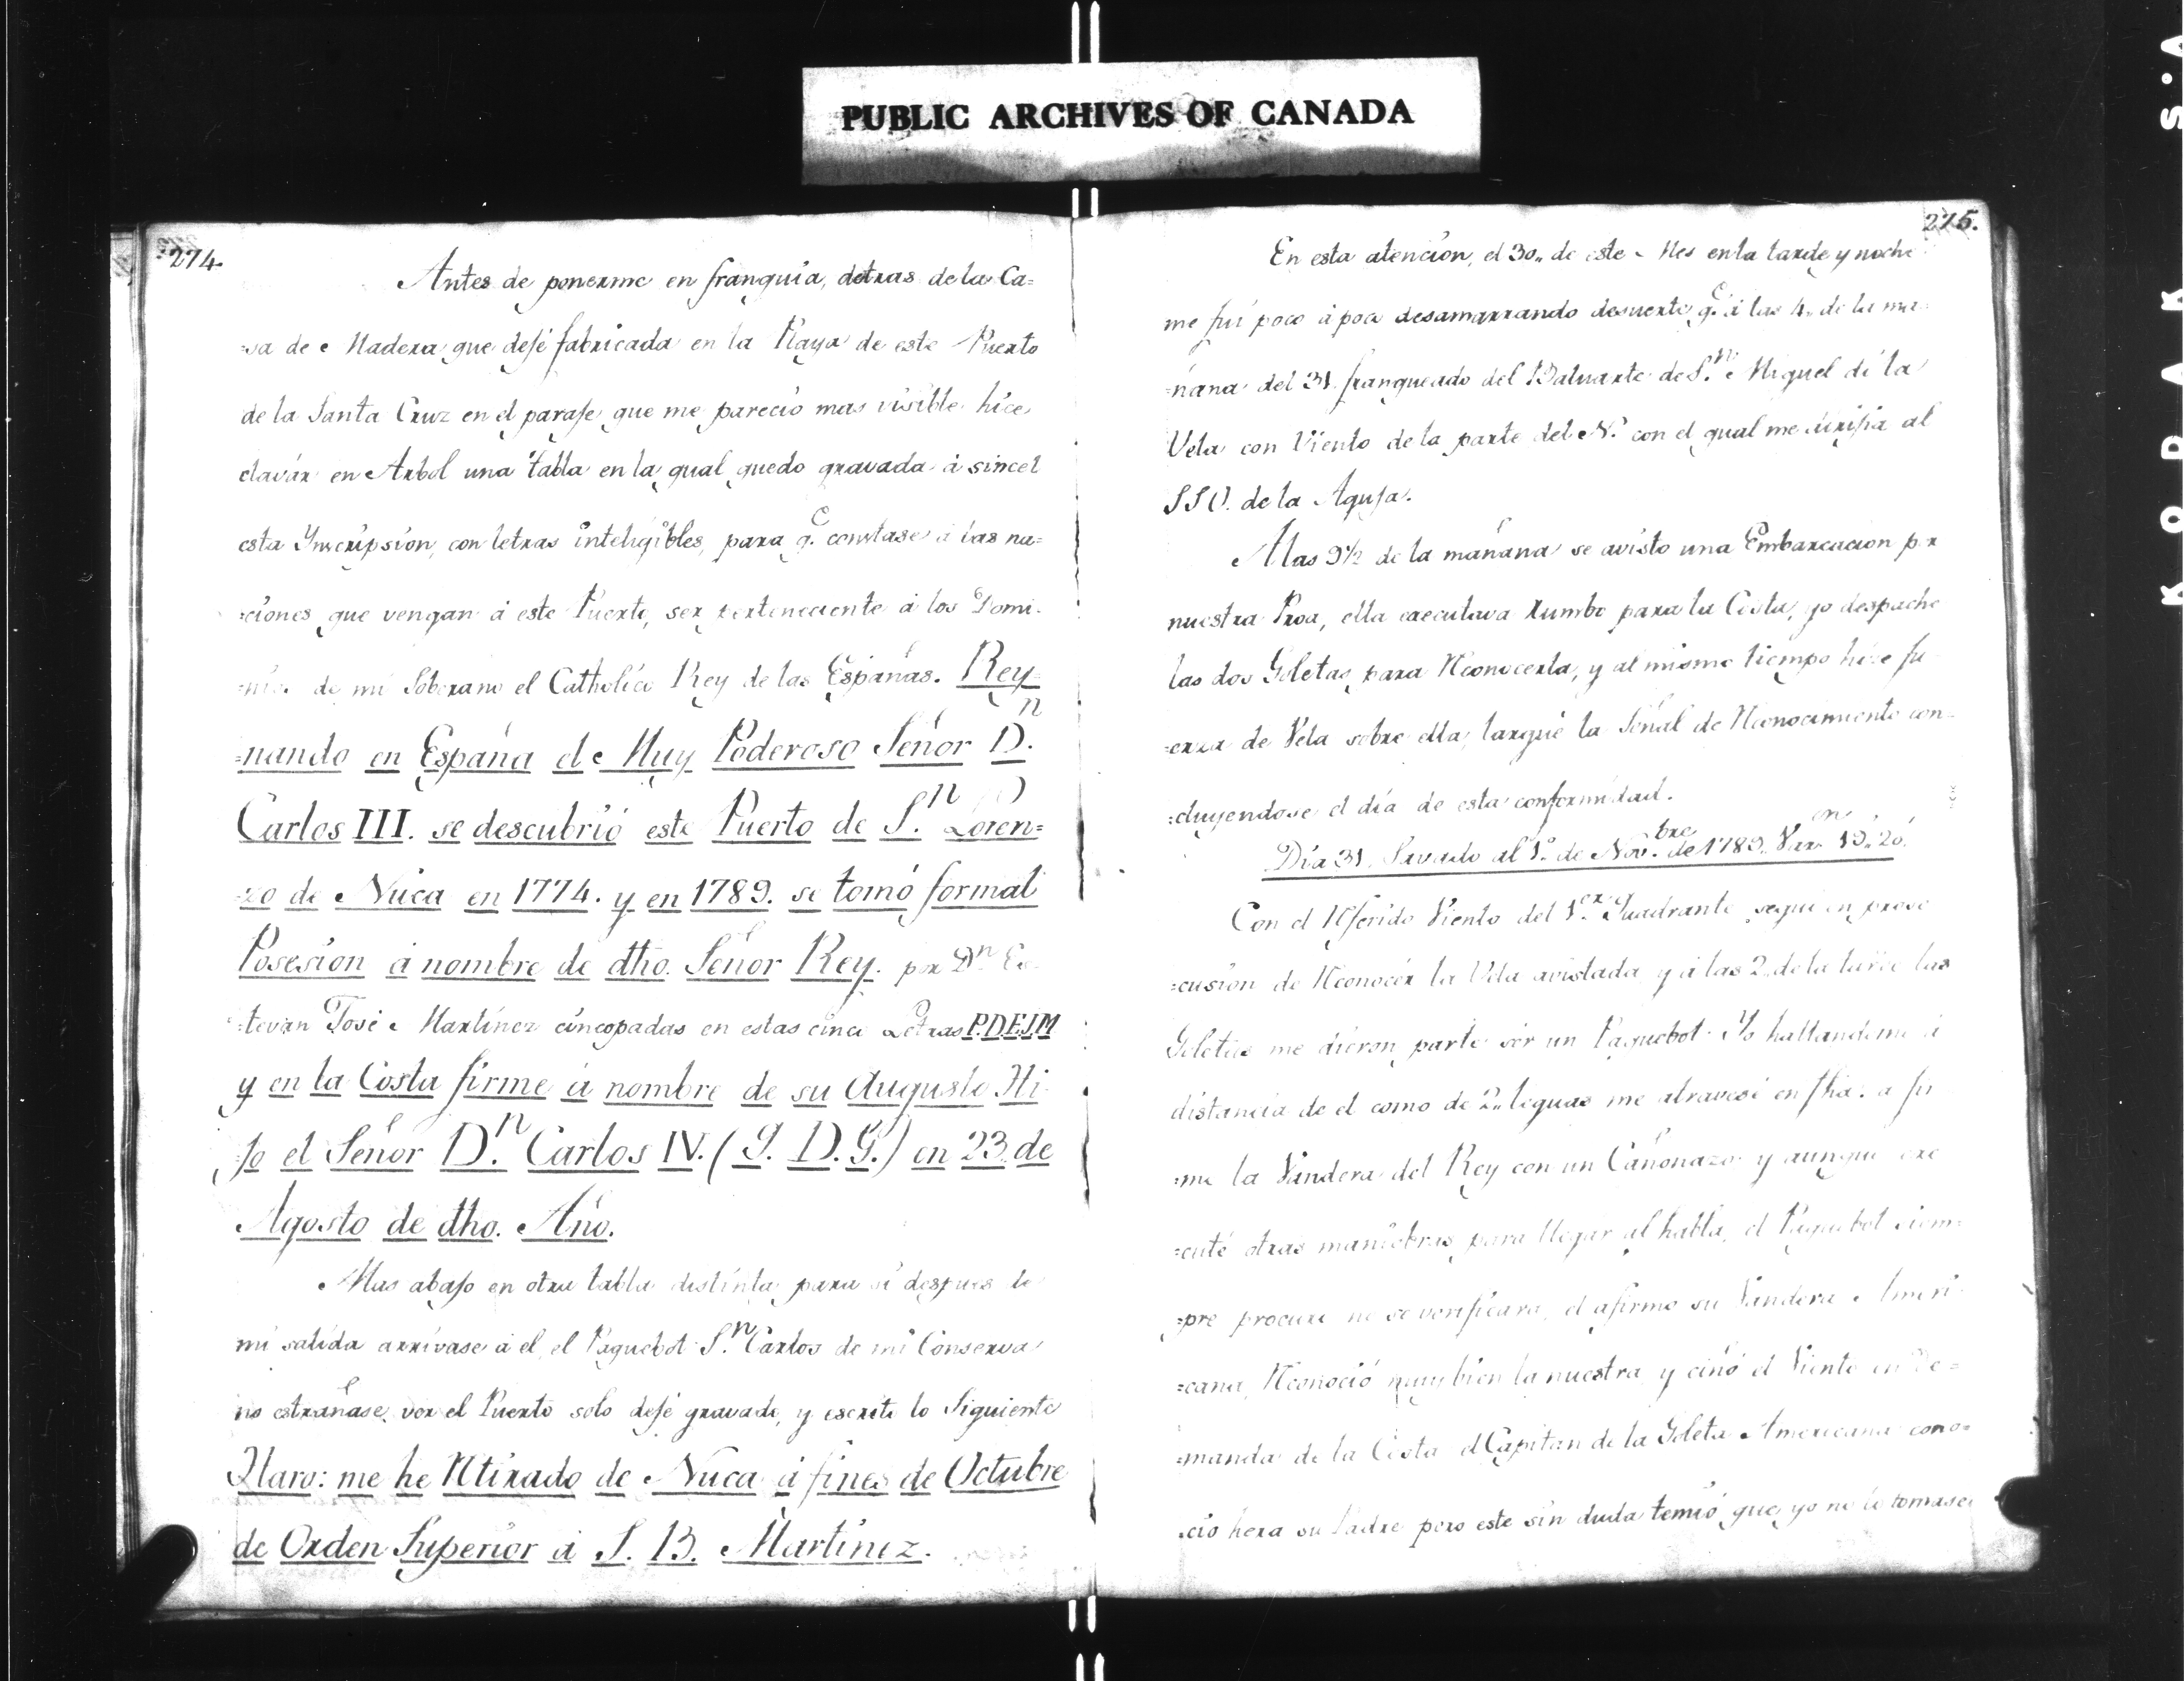 PUBLIC ARCHIVES OF CANADA
KODAK S·A
274.
Antes de ponerme en franquia, detras de la Ca=
=sa de Madera que dejé fabricada en la Playa de este Puerto
de la Santa Cruz en el paraje que me pareció mas visible hice
clavár en Arbol una tabla en la qual quedo gravada á sincel
esta Ynscripsion, con letras inteligibles, para q.e constase á las na=
=ciones que vengan á este Puerto, ser perteneciente á los Domi-
=nios de mi Soberano el Catholico Rey de las Españas. Rey=
=nando en España el Muy Poderoso Señor D.n
Carlos III. se descubrió este Puerto de S.n Loren=
=zo de Nuca en 1774. y en 1789. se tomó formal
Posesion á nombre de dho. Señor Rey. por D.n Es-
=tevan José Martínez cincopadas en estas cinco Letras P.D.E.J.M
y en la Costa firme á nombre de su Augusto Hi-
=jo el Señor D.n Carlos IV. (Q. D. G.) en 23 de
Agosto de dho. Año.
Mas abajo en otra tabla distinta para si despues de
mi salida arrivase á el el Paquebot S.n Carlos de mi Conserva
no estrañase ver el Puerto solo dejé gravado, y escrito lo Siguiente
Haro: me he Rtirado de Nuca á fines de Octubre
de Orden Superior á S. B. Martinez.
275.
En esta atencion, el 30,, de este Mes en la tarde y noche
me fui poco á poco desamarrando desuerte q.e á las 4,, de la ma-
=ñana del 31 franqueado del Baluarte de S.n Miguel dí la
Vela con Viento de la parte del N. con el qual me dirijia al
SSO. de la Aguja.
A las 9 1/2 de la mañana se avistó una Embarcacion por
nuestra Proa, ella executava rumbo para la Costa, yo despache
las dos Goletas para Rconocerla, y al mismo tiempo hize fu-
=erza de Vela sobre ella, largué la Señal de Rconocimiento con-
=cluyendose el dia de esta conformidad.
Dia 31. Savado al 1.º de Nov.bre de 1789. Var.on 19,, 20.
Con el Rferido Viento del 1.er Quadrante segui en prose
=cusion de Rconocér la Vela avistada y á las 2,, de la tarde las
Goletas me dieron parte sér un Paquebot. Yo hallandome á
distancia de el como de 2,, leguas me atravesé en fha. afir
=me la Vandera del Rey con un Cañonazo y aunque exe
=cuté otras maniobras para llegar al habla, el Paquebot siem=
=pre procuró no se verificara, el afirmo su Vandera Ameri-
=cana, Rconoció muy bien la nuestra y ciñó el Viento en De=
=manda de la Costa el Capitan de la Goleta Americana cono=
=cio hera su Padre pero este sin duda temió que yo no lo tomase